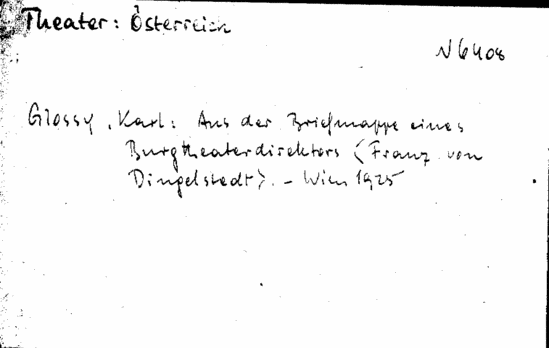 Theater: Österreich
N 6408
Glossy, Karl: Aus der Briefmappe eines
Burgtheaterdirektors <Franz von
Dingelstedt>. - Wien 1925